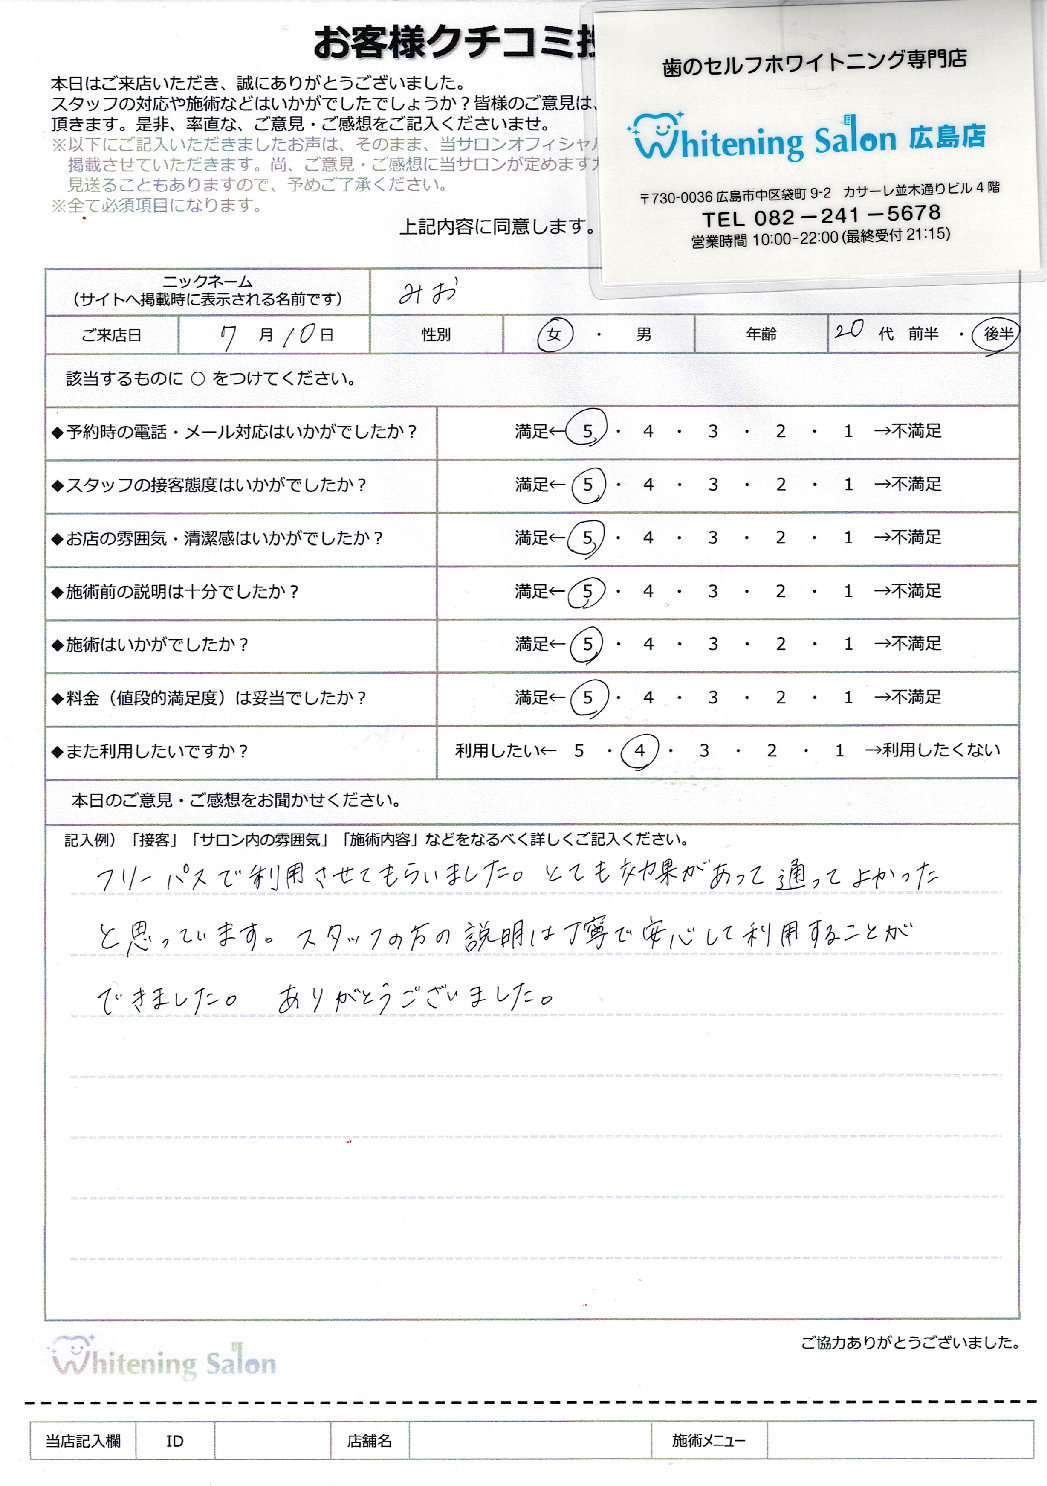 お客様クチコミ投
本日はご来店いただき、誠にありがとうございました。
スタッフの対応や施術などはいかがでしたでしょうか？皆様のご意見は、
頂きます。是非、率直な、ご意見・ご感想をご記入くださいませ。
※以下にご記入いただきましたお声は、そのまま、当サロンオフィシャル
掲載させていただきます。尚、ご意見・ご感想に当サロンが定めます
見送ることもありますので、予めご了承ください。
※全て必須項目になります。
上記内容に同意します。
歯のセルフホワイトニング専門店
Whitening Salon 広島店
〒730-0036 広島市中区袋町 9-2 カサーレ並木通りビル 4 階
TEL 082－241－5678
営業時間 10:00-22:00 (最終受付 21:15)
ニックネーム
（サイトへ掲載時に表示される名前です） みお
ご来店日 7 月 10 日 性別 女 ・ 男 年齢 20 代 前半 ・ 後半
該当するものに ○ をつけてください。
◆予約時の電話・メール対応はいかがでしたか？ 満足← 5 ・ 4 ・ 3 ・ 2 ・ 1 →不満足
◆スタッフの接客態度はいかがでしたか？ 満足← 5 ・ 4 ・ 3 ・ 2 ・ 1 →不満足
◆お店の雰囲気・清潔感はいかがでしたか？ 満足← 5 ・ 4 ・ 3 ・ 2 ・ 1 →不満足
◆施術前の説明は十分でしたか？ 満足← 5 ・ 4 ・ 3 ・ 2 ・ 1 →不満足
◆施術はいかがでしたか？ 満足← 5 ・ 4 ・ 3 ・ 2 ・ 1 →不満足
◆料金（値段的満足度）は妥当でしたか？ 満足← 5 ・ 4 ・ 3 ・ 2 ・ 1 →不満足
◆また利用したいですか？ 利用したい← 5 ・ 4 ・ 3 ・ 2 ・ 1 →利用したくない
本日のご意見・ご感想をお聞かせください。
記入例）「接客」「サロン内の雰囲気」「施術内容」などをなるべく詳しくご記入ください。
フリーパスで利用させてもらいました。とても効果があって通ってよかった
と思っています。スタッフの方の説明は丁寧で安心して利用することが
できました。 ありがとうございました。
Whitening Salon
ご協力ありがとうございました。
当店記入欄 ID 店舗名 施術メニュー